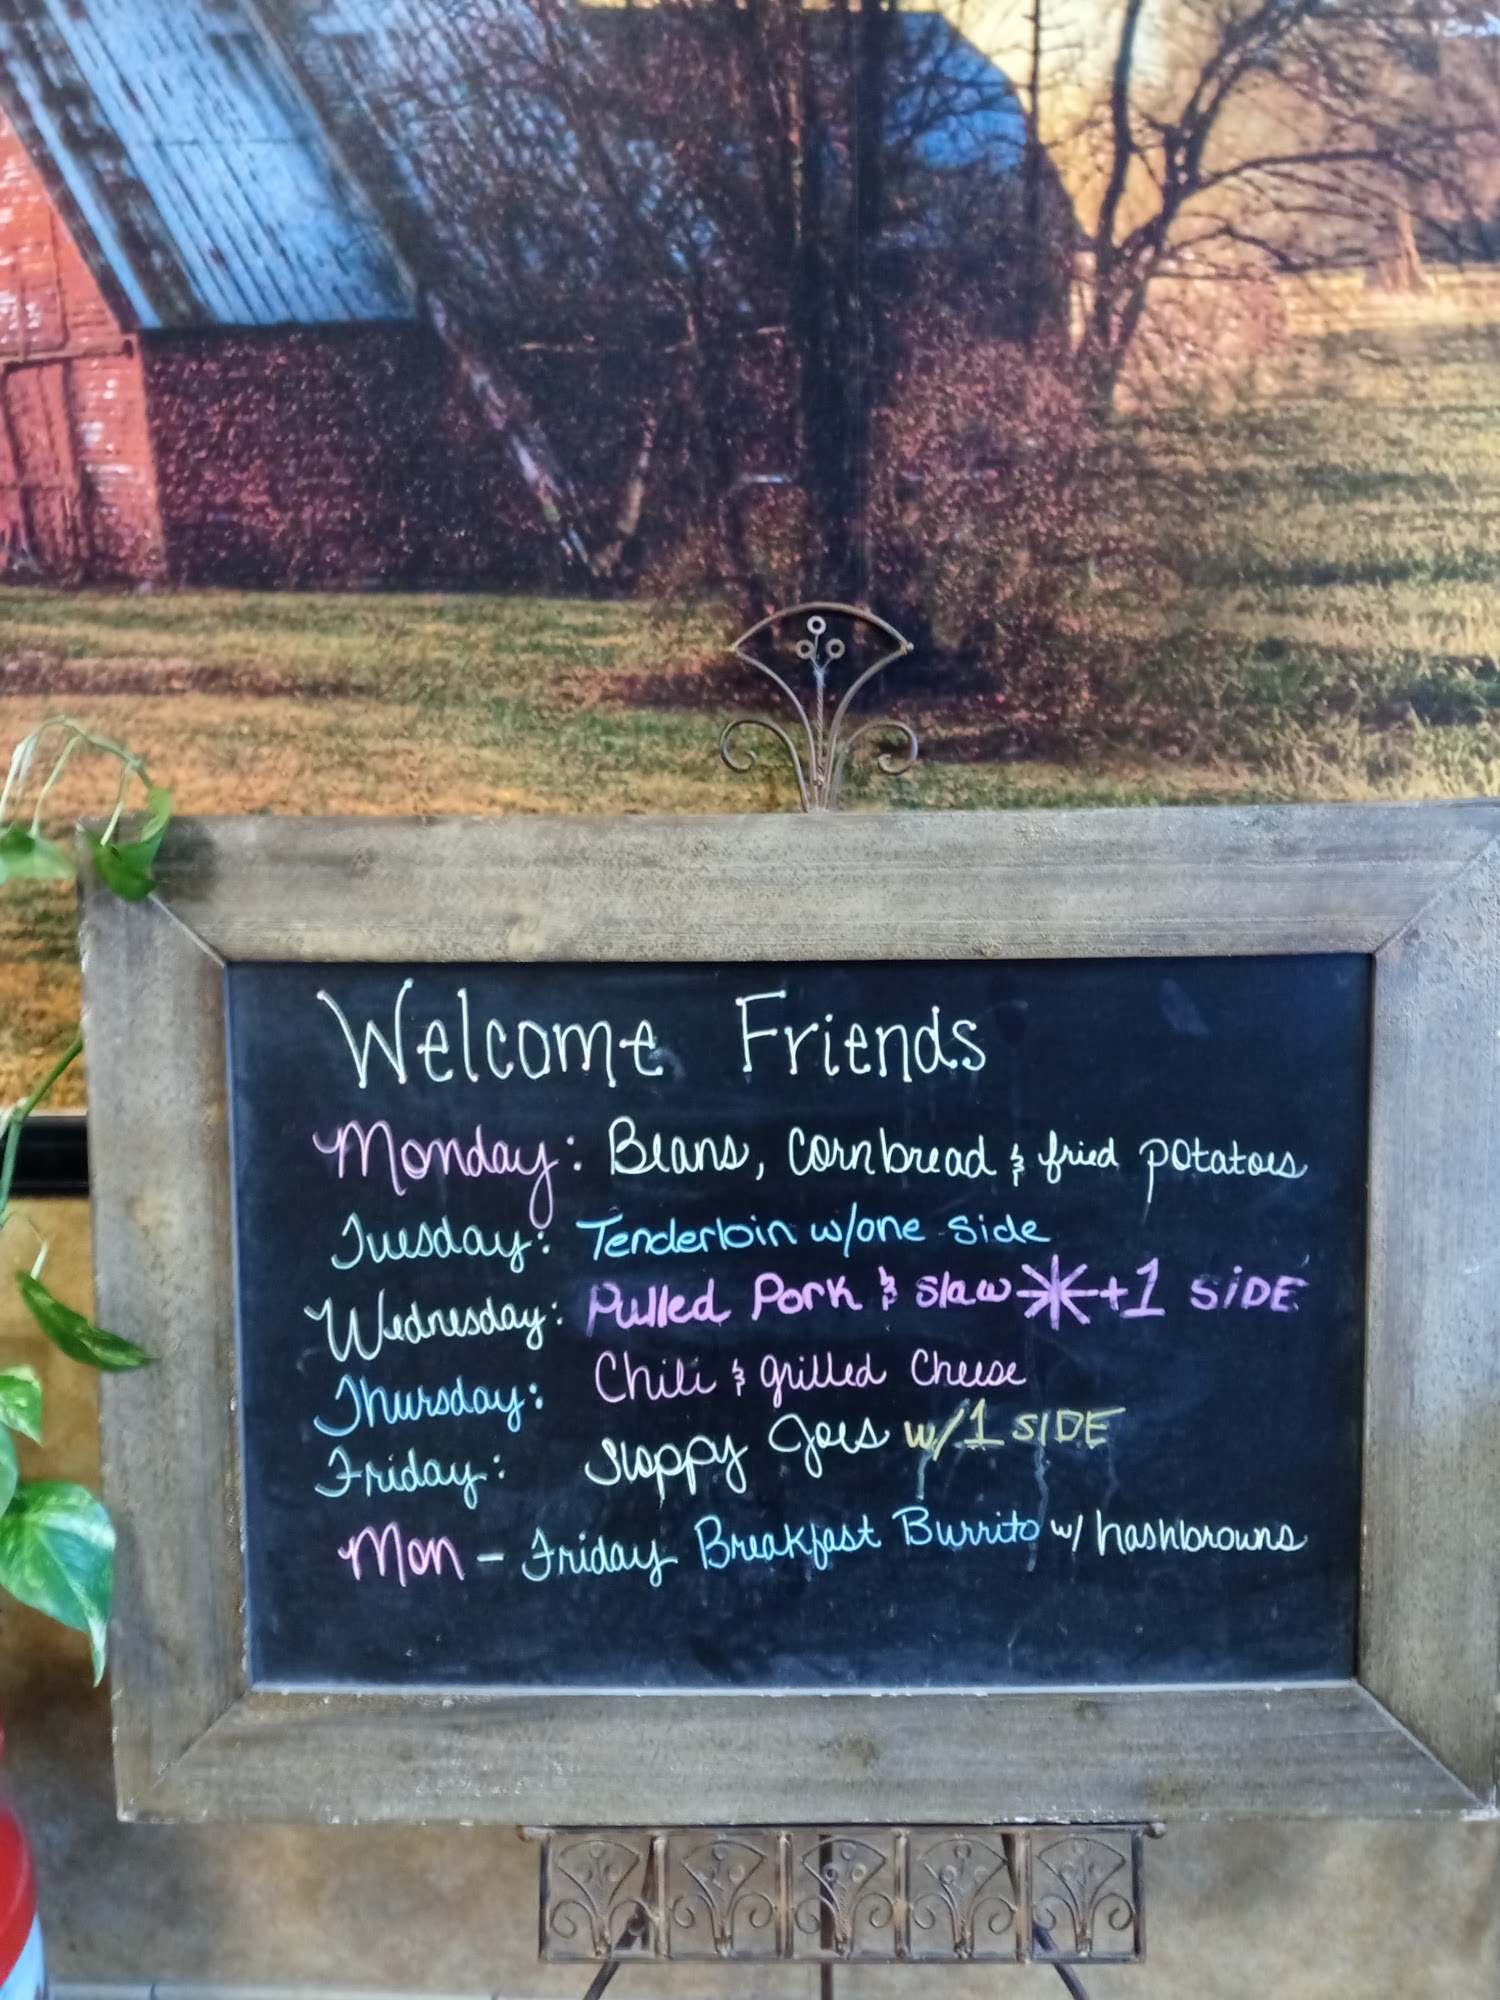 Welcome Friends
Monday: Beans, Cornbread & fried potatoes
Tuesday: Tenderloin w/one side
Wednesday: Pulled Pork & slaw * +1 SiDE
Thursday: Chili & grilled Cheese
Friday: Sloppy Joes w/1 SIDE
Mon - Friday Breakfast Burrito w/ hashbrowns